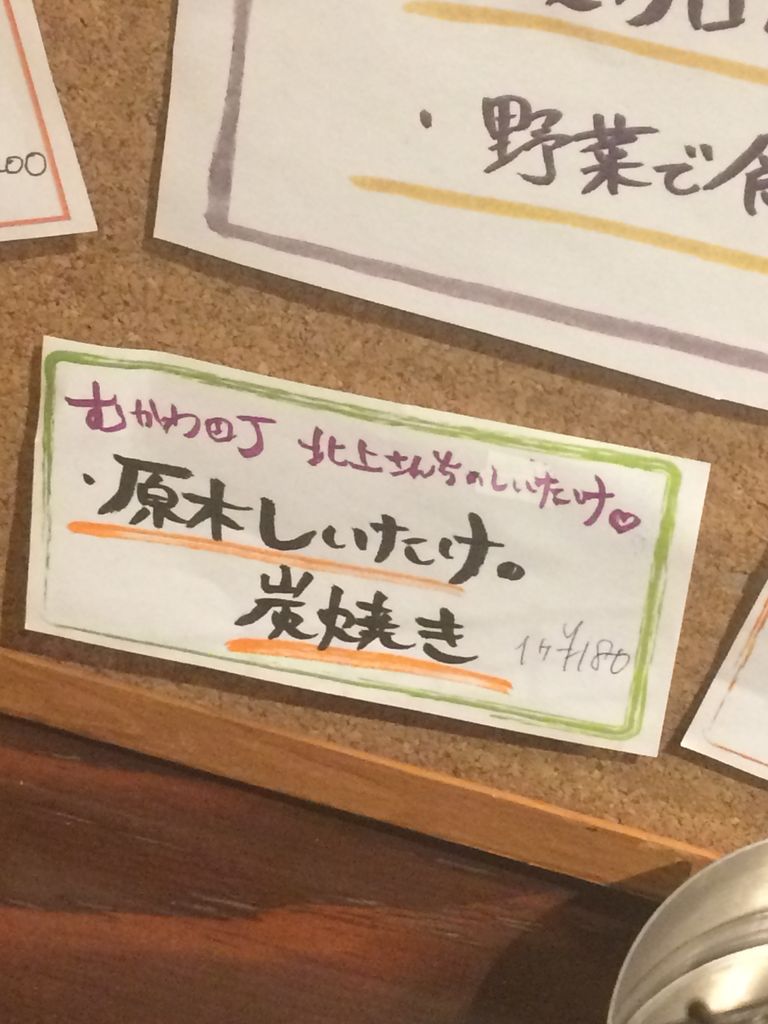 ・野菜で
00
むかわ町 北上さんちのしいたけ♡
・原木しいたけ。
炭焼き 1ケ ¥180